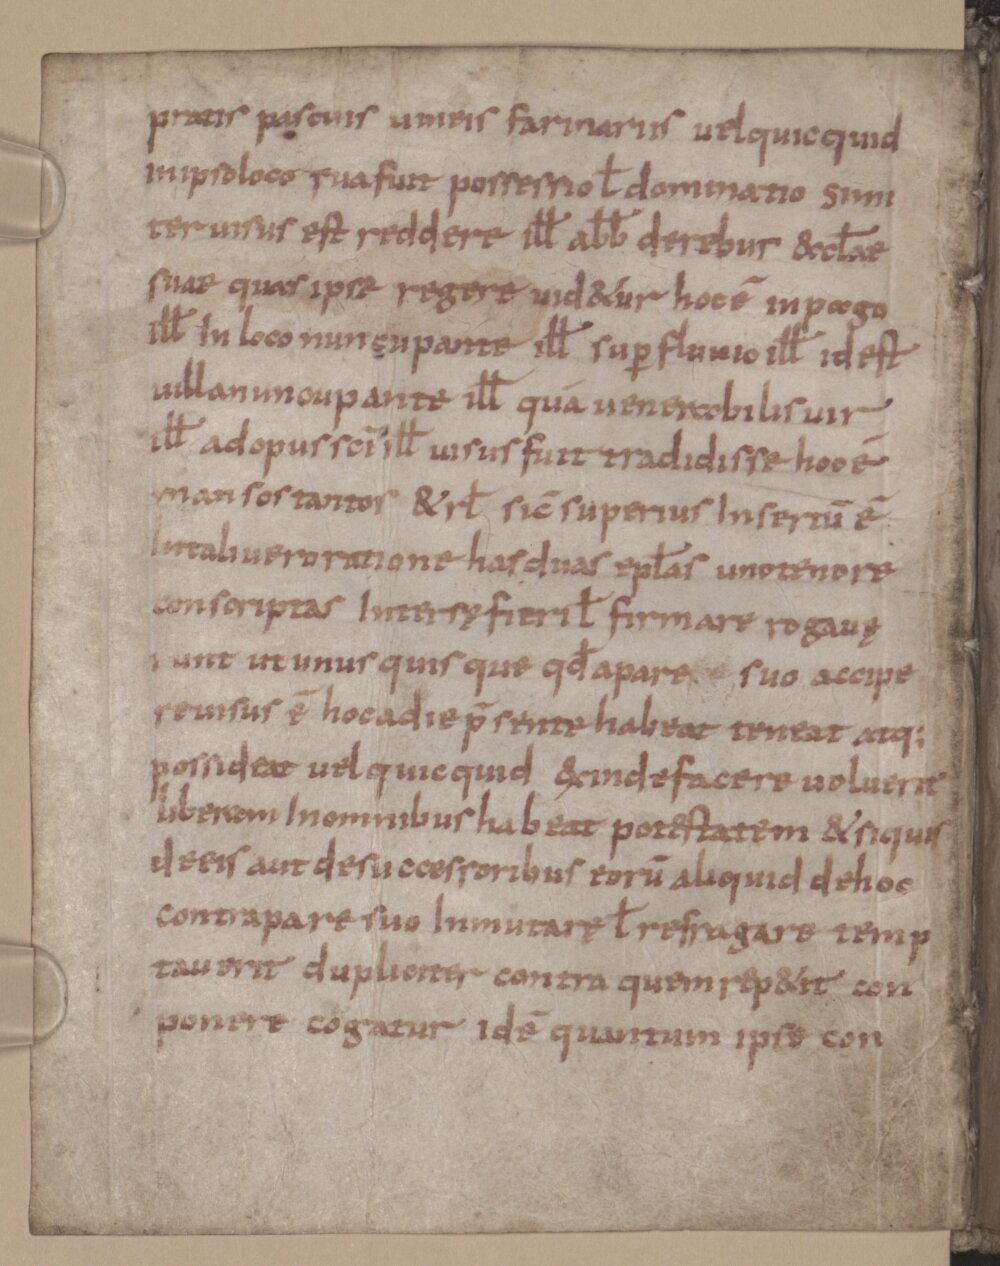 pratis pascuis uineis farinariis uel quicquid
in ipso loco sua fuit possessio ł dominatio simi
ter uisus est reddere ill̄ abb̄ de rebus &ccl̄ae
suae quas ipse regere uid&ur hoc ē in pago
ill̄ In loco nuncupante ill̄ sup fluuio ill̄ id est
uilla nuncupante ill̄ quā uenerabilis uir
ill̄ ad opus sc̄i ill̄ uisus fuit tradidisse hoc ē
mansos tantos & rł sic̄ superius Insertū ē
In tali uero ratione has duas epl̄as uno tenore
conscriptas Inter sę fieri ł firmare rogauę
runt ut unus quis que qđ a pare suo accipe
re uisus ē hoc a die p̄sente habeat teneat atq;
possideat uel quicquid &cinde facere uoluerit
liberam In omnibus habeat potestatem & si quis
de eis aut de successoribus eorū aliquid de hoc
contra pare suo Inmutare ł refragare temp
tauerit dupliciter contra quem rep&it con
ponere cogatur id ē quantum ipse con